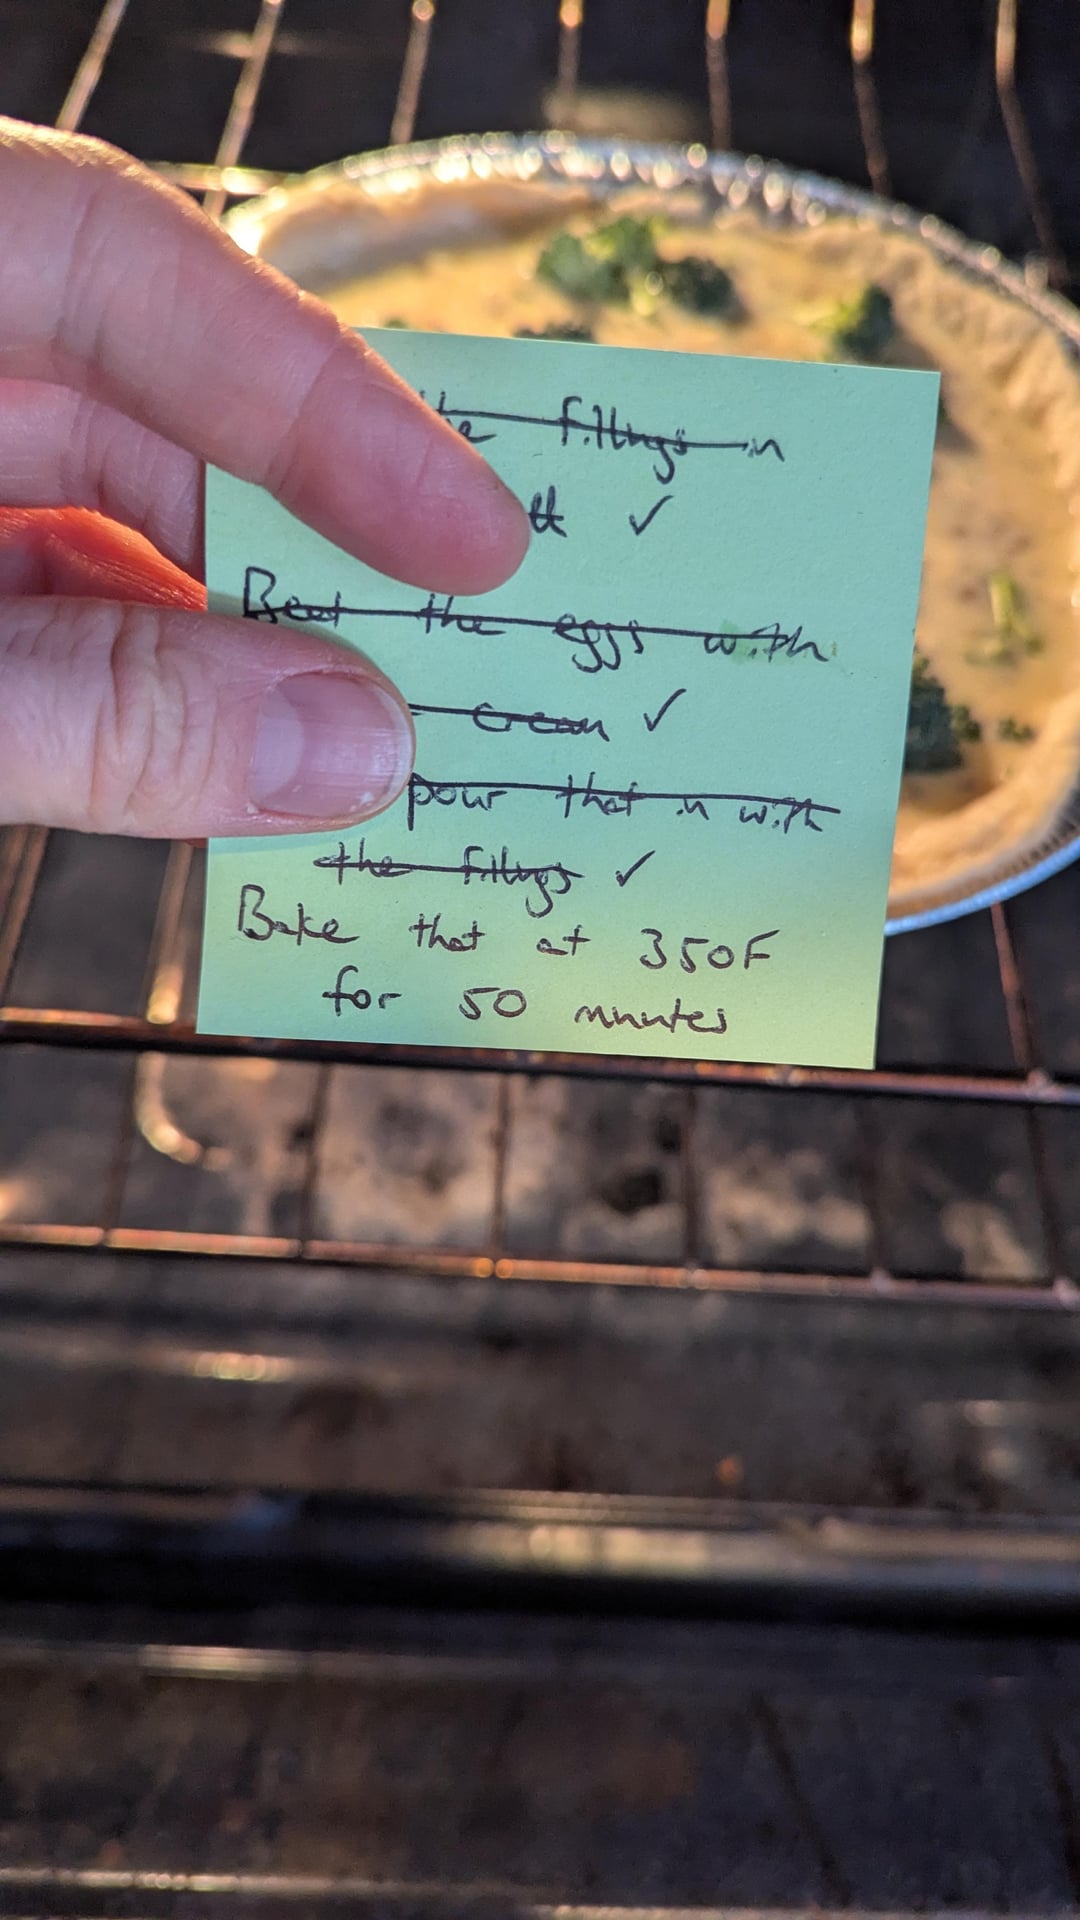 the fillings in
Beat the eggs with
cream ✓
pour that in with
the fillings ✓
Bake that at 350F
for 50 minutes